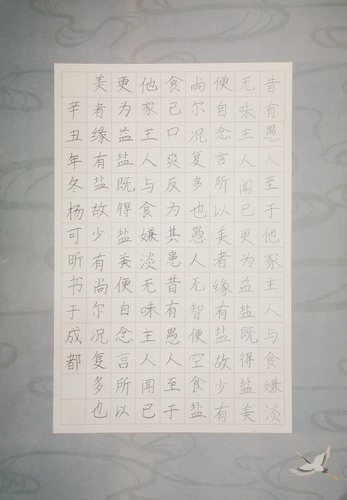 昔有愚人至于他家主人与食嫌淡
无味主人闻已更为益盐既得盐美
便自念言所以美者缘有盐故少有
尚尔况复多也愚人无智便空食盐
食已口爽反为其患昔有愚人至于
他家主人与食嫌淡无味主人闻已
更为益盐既得盐美便自念言所以
美者缘有盐故少有尚尔况复多也
辛丑年冬杨可昕书于成都